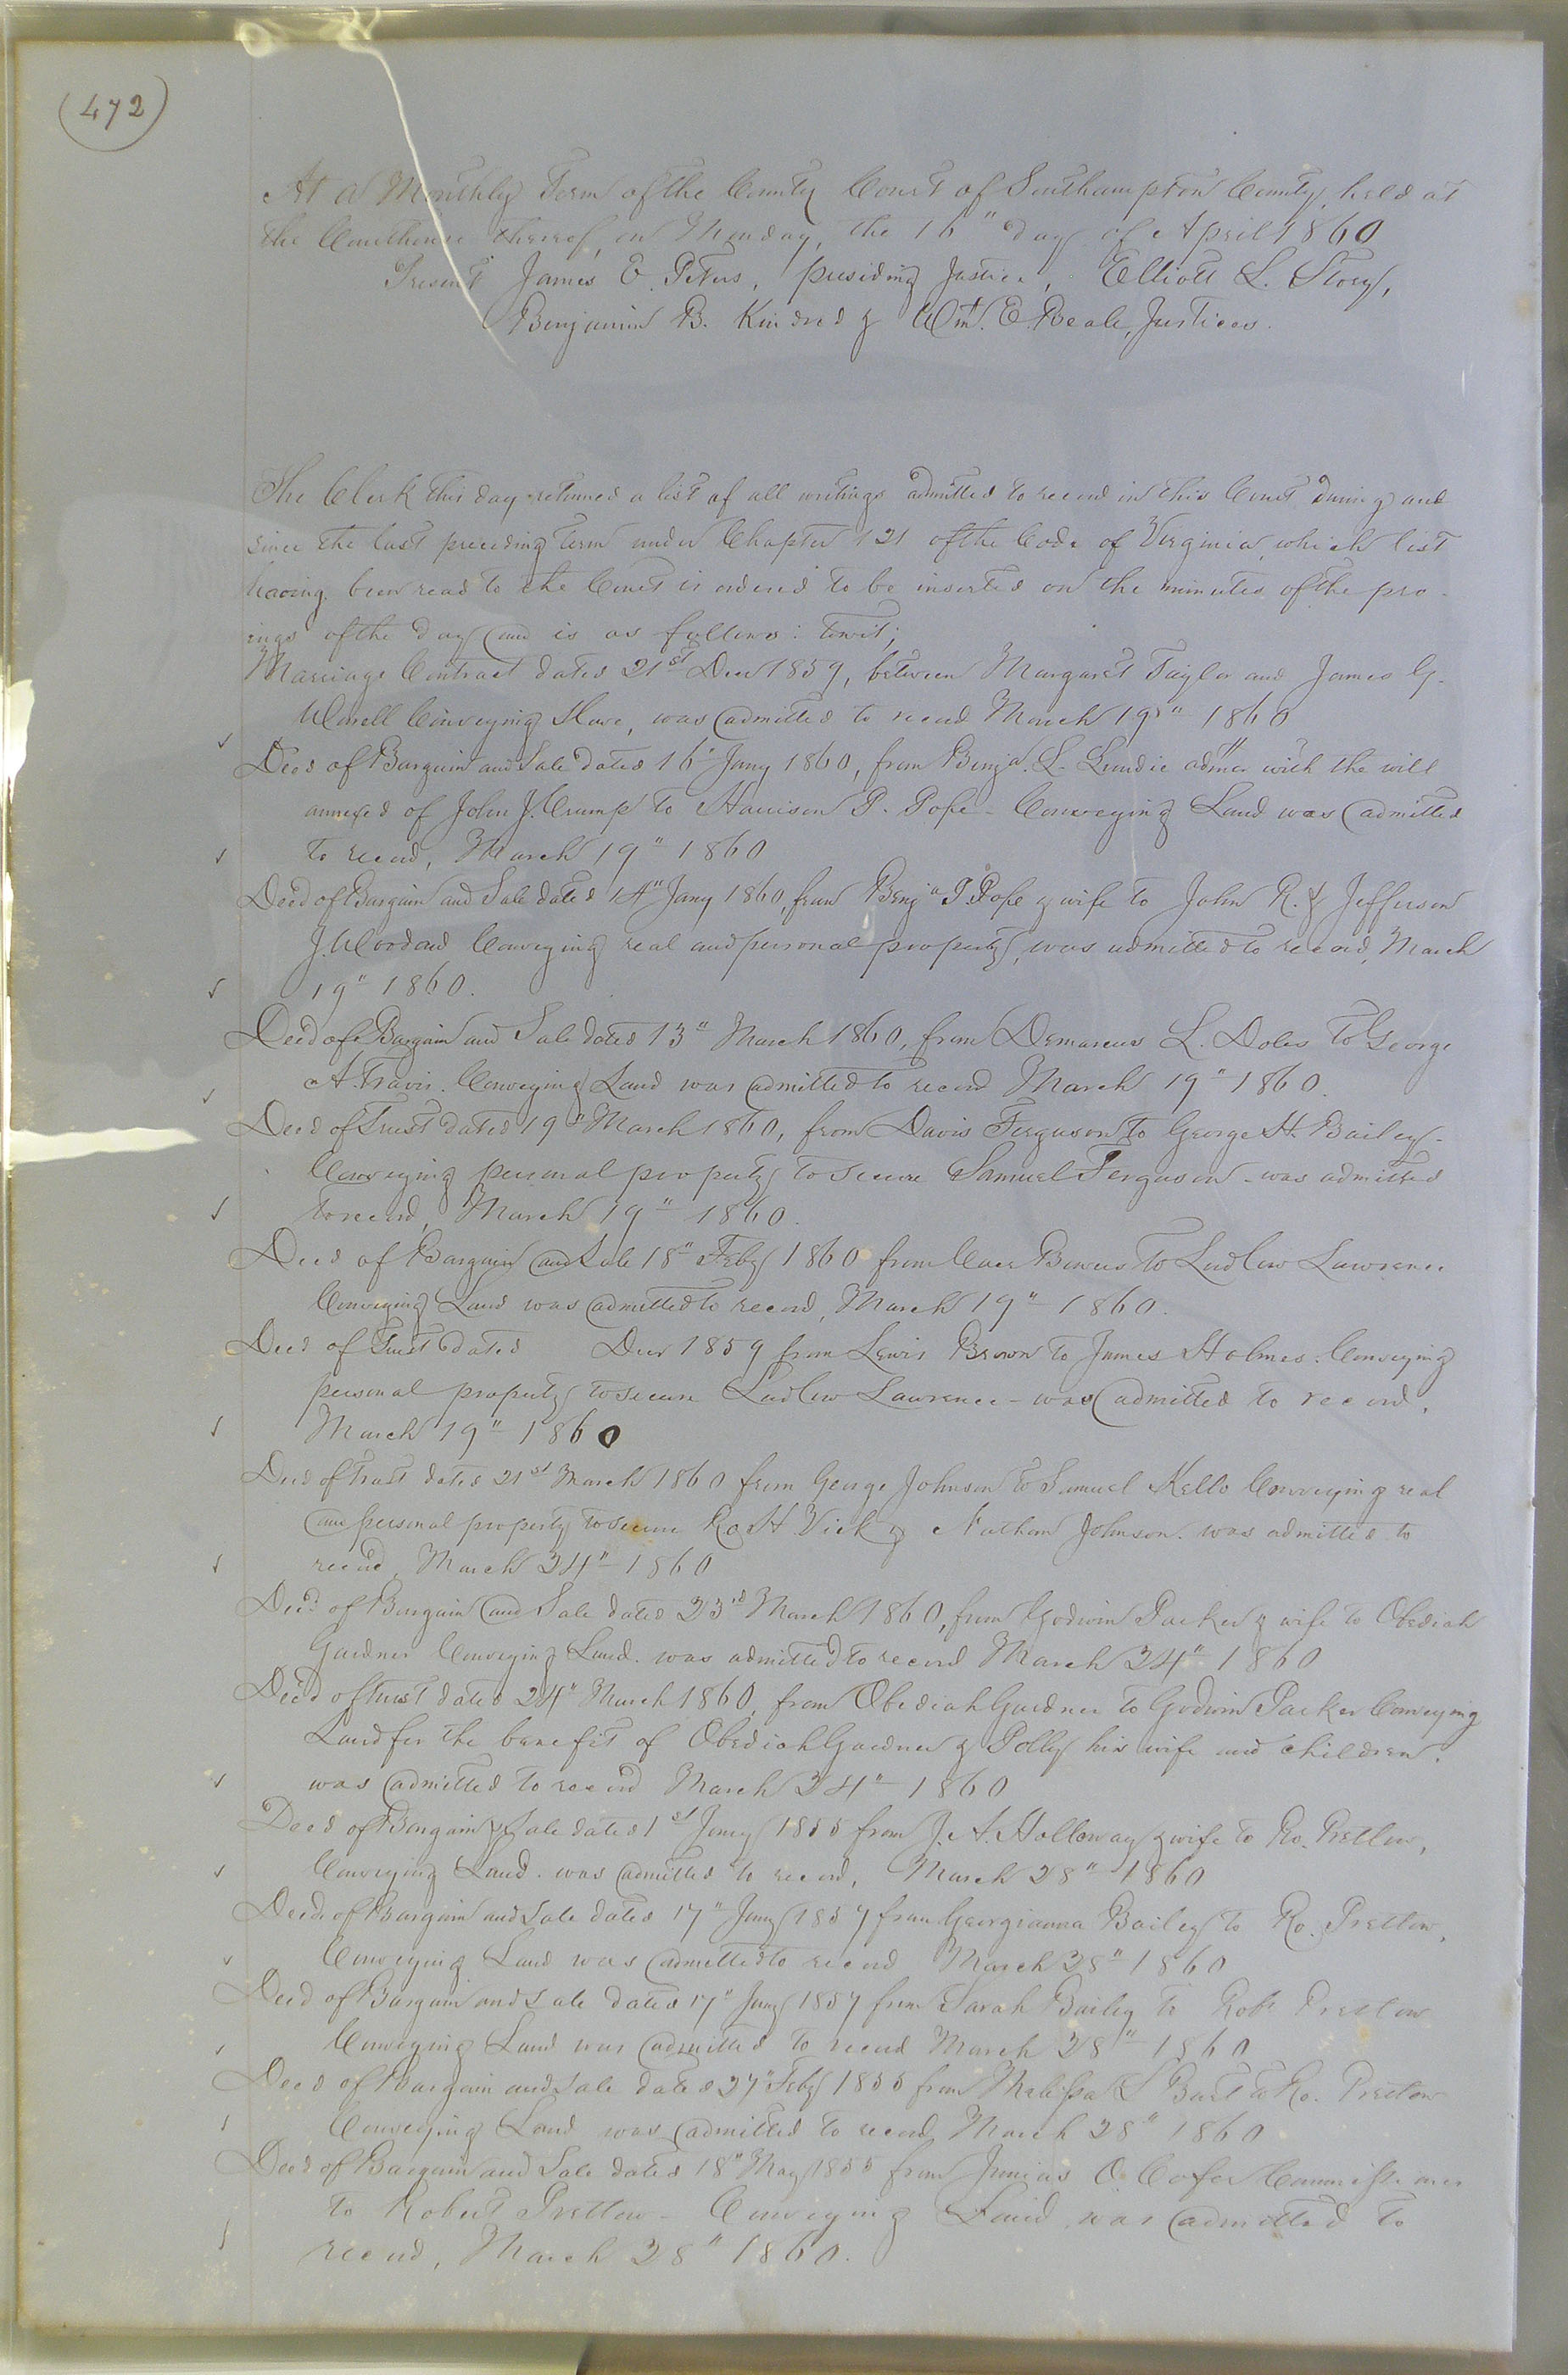 (472)
At a Monthly Term of the County Court of Southampton County, held at
the Courthouse thereof, on Monday, the 16" day of April 1860
Present James E. Peters, presiding Justice, Elliott L. Story,
Benjamin B. Kindred & Wm. E. Beale, Justices.
The Clerk this day returned a list of all writings admitted to record in this Court during and
since the last preceding term under Chapter 121 of the Code of Virginia, which list
having been read to the Court is ordered to be inserted on the minutes of the pro-
ings of the day and is as follows: towit;
Marriage Contract dated 21st Decr 1859, between Margaret Taylor and James G.
Worrell Conveying Slave, was admitted to record March 19" 1860
Deed of Bargain and Sale dated 16" Jany 1860, from Benja. L. Lundie admr with the will
annexed of John J. Crump to Harrison P. Pope - Conveying Land was admitted
to record, March 19" 1860
Deed of Bargain and Sale dated 14" Jany 1860, from Benja P. Pope & wife to John R. & Jefferson
J. Woodard Conveying real and personal property, was admitted to record, March
19" 1860.
Deed of Bargain and Sale dated 13" March 1860, from Demarcus L. Doles to George
A. Travis. Conveying Land was admitted to record March 19" 1860.
Deed of Trust dated 19" March 1860, from Davis Ferguson to George H. Bailey-
Conveying personal property to secure Samuel Ferguson - was admitted
to record, March 19" 1860.
Deed of Bargain and Sale 18" Feby 1860 from Bowers to Ludlow Lawrence
Conveying Land was admitted to record, March 19" 1860.
Deed of Trust dated Decr 1859 from Lewis Brown to James Holmes. Conveying
personal property to secure Ludlow Lawrence - was admitted to record,
March 19" 1860
Deed of Trust dated 21st March 1860 from George Johnson to Samuel Kello Conveying real
and personal property to secure Ro. H. Vick & Nathan Johnson. was admitted to
record, March 24" 1860
Deed of Bargain and Sale dated 23rd March 1860, from Godwin Parker & wife to Obediah
Gardner Conveying Land. was admitted to record March 24" 1860
Deed of trust dated 24" March 1860, from Obediah Gardner to Godwin Parker Conveying
Land for the benefit of Obediah Gardner & Polly his wife and children.
was admitted to record March 24" 1860
Deed of Bargain & Sale dated 1st Jany 1855 from J. A. Holloway & wife to Ro. Pretlow,
Conveying Land. was admitted to record, March 28" 1860
Deed of Bargain and Sale dated 17" Jany 1857 from Georgianna Bailey to Ro. Pretlow,
Conveying Land was admitted to record March 28" 1860
Deed of Bargain and Sale dated 17" Jany 1857 from Sarah Bailey to Robt Pretlow
Conveying Land was admitted to record March 28" 1860
Deed of Bargain and Sale dated 27" Feby 1855 from Malissa S to Ro. Pretlow
Conveying Land was admitted to record March 28" 1860
Deed of Bargain and Sale dated 18" May 1855 from Junius O. Cofer Commissioner
to Robert Pretlow - Conveying Land was admitted to
record, March 28" 1860.